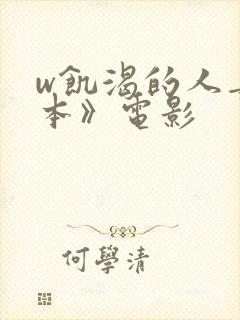 w飢渴的人
本》電影
何學清